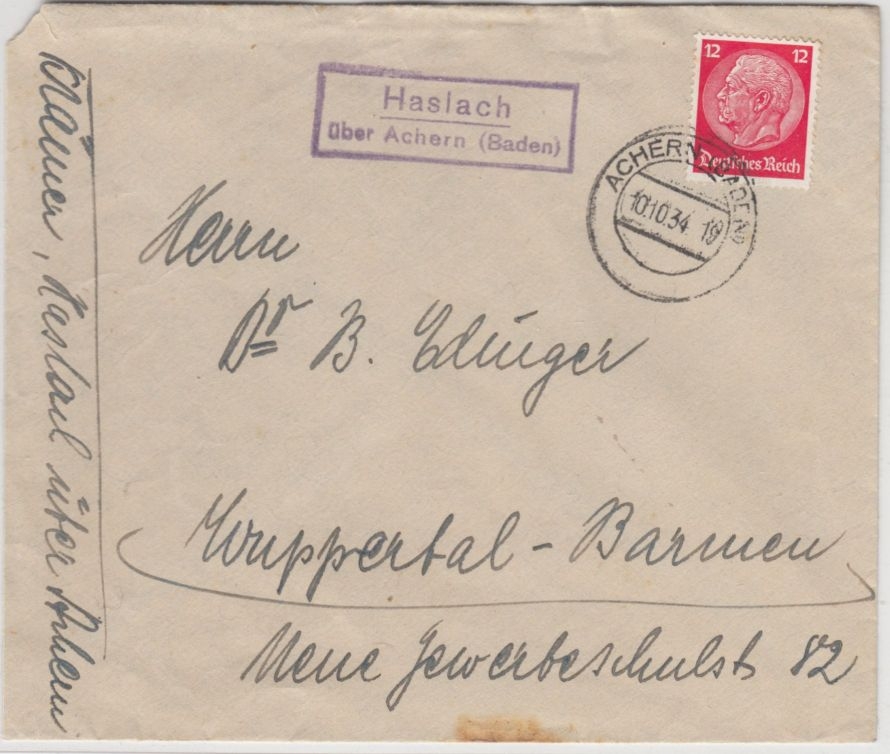 Haslach
über Achern (Baden)
12 12
Deutsches Reich
ACHERN (BADEN)
10.10.34 19
Herrn
Dr B. Edinger
Wuppertal - Barmen
Neue Gewerbeschulst 82
Haslach über Achern